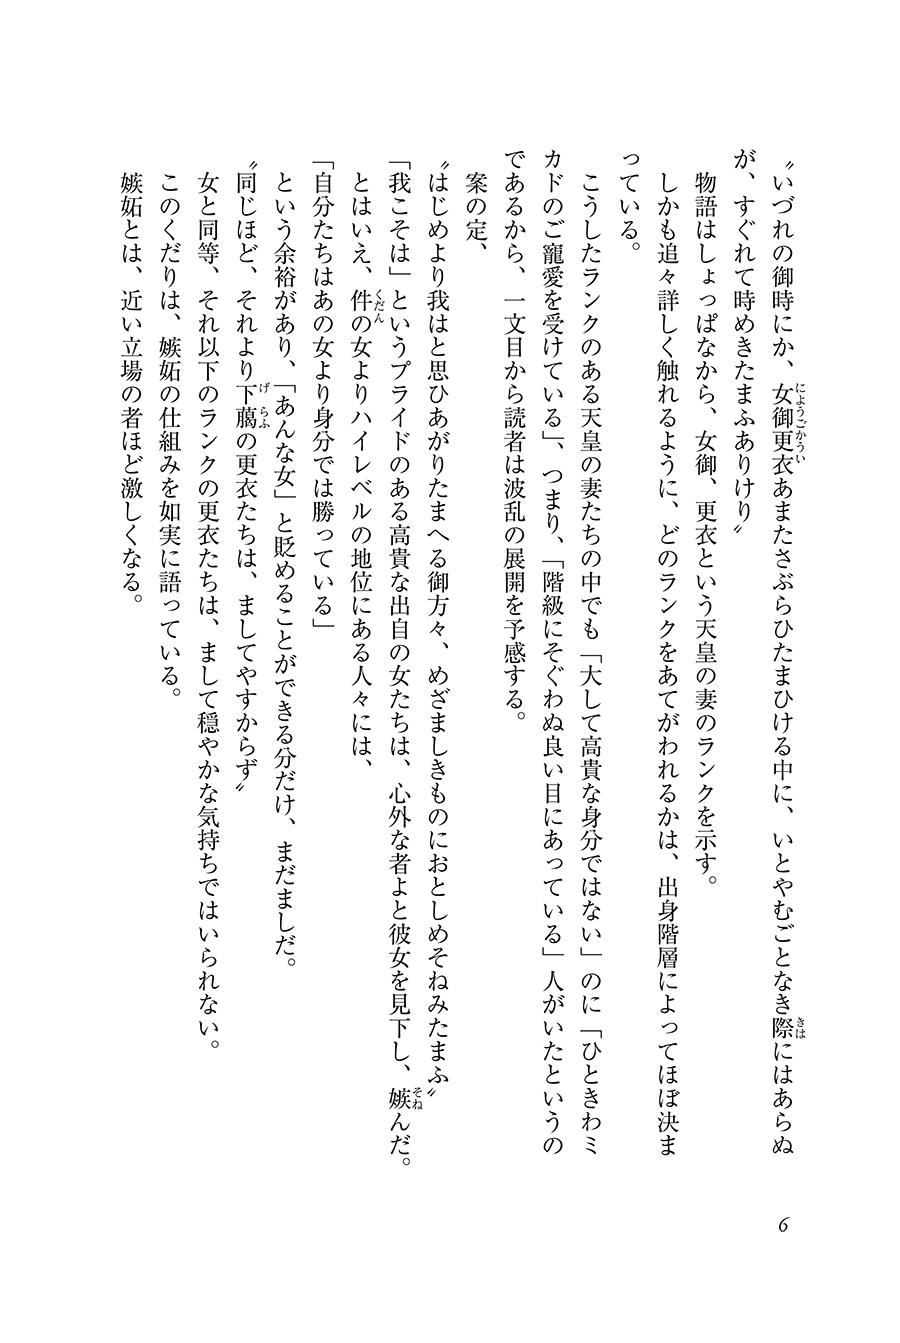 〝いづれの御時にか、女御更衣あまたさぶらひたまひける中に、いとやむごとなき際にはあらぬ
が、すぐれて時めきたまふありけり〟
物語はしょっぱなから、女御、更衣という天皇の妻のランクを示す。
しかも追々詳しく触れるように、どのランクをあてがわれるかは、出身階層によってほぼ決ま
っている。
こうしたランクのある天皇の妻たちの中でも「大して高貴な身分ではない」のに「ひときわミ
カドのご寵愛を受けている」、つまり、「階級にそぐわぬ良い目にあっている」人がいたというの
であるから、一文目から読者は波乱の展開を予感する。
案の定、
〝はじめより我はと思ひあがりたまへる御方々、めざましきものにおとしめそねみたまふ〟
「我こそは」というプライドのある高貴な出自の女たちは、心外な者よと彼女を見下し、嫉んだ。
とはいえ、件の女よりハイレベルの地位にある人々には、
「自分たちはあの女より身分では勝っている」
という余裕があり、「あんな女」と貶めることができる分だけ、まだましだ。
〝同じほど、それより下﨟の更衣たちは、ましてやすからず〟
女と同等、それ以下のランクの更衣たちは、まして穏やかな気持ちではいられない。
このくだりは、嫉妬の仕組みを如実に語っている。
嫉妬とは、近い立場の者ほど激しくなる。
にようごかうい
きは
そね
くだん
げらふ
6